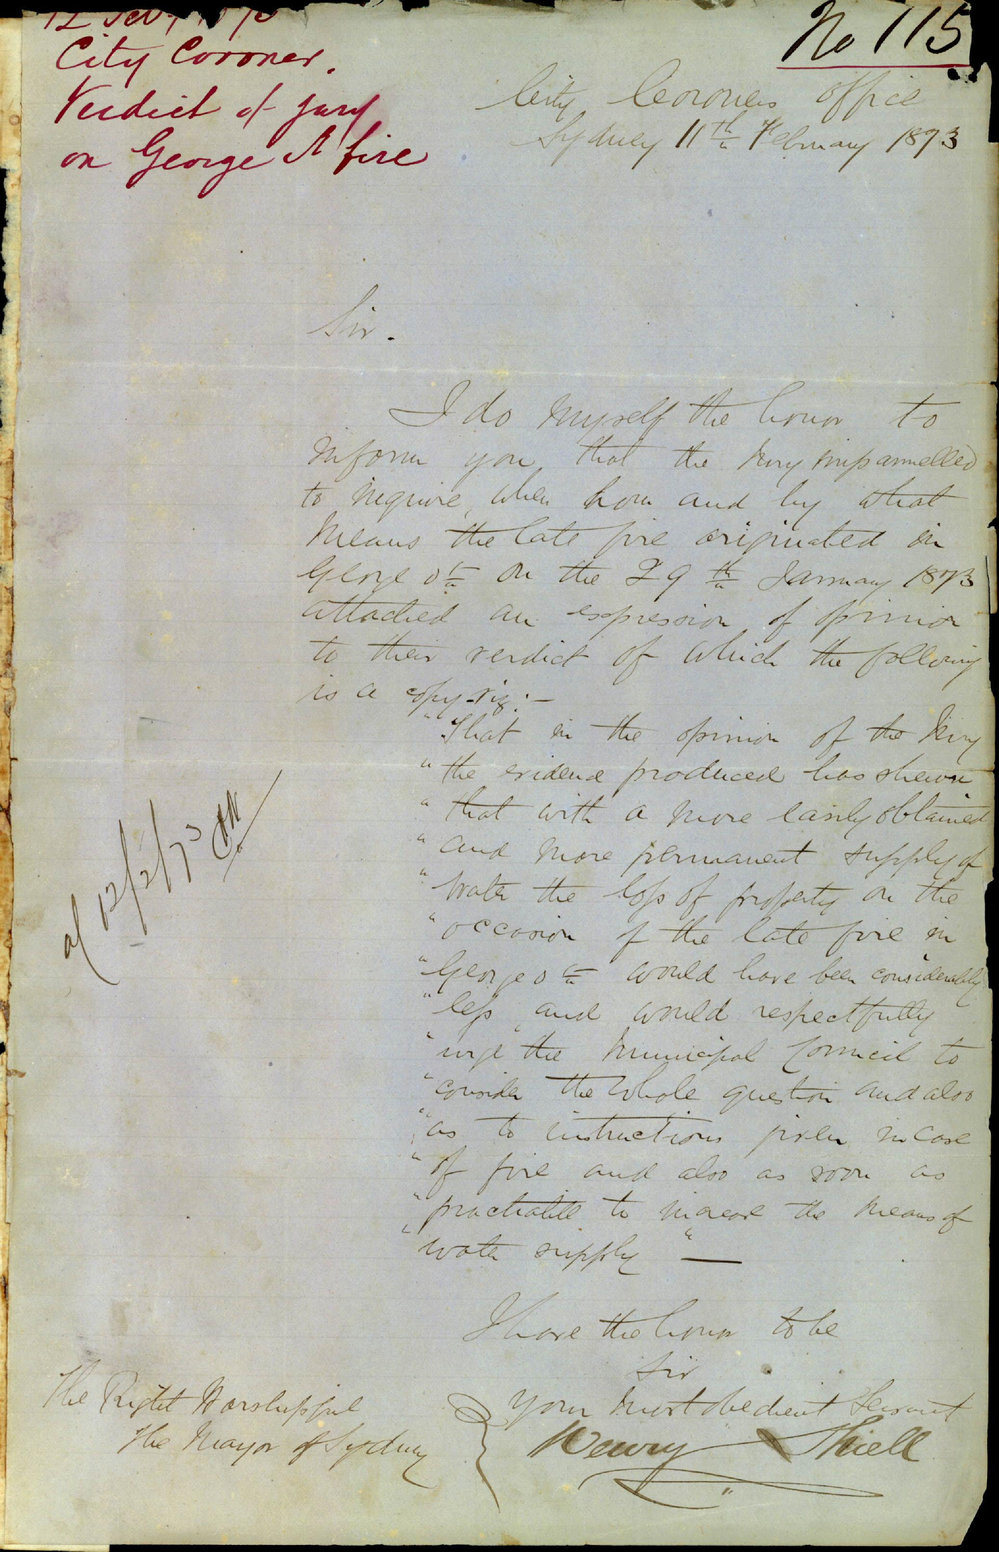 12 Feby 1873
City Coroner.
Verdict of jury
on George St fire
No 115
City Coroners Office
Sydney 11th February 1873
Sir.
I do myself the honor to
inform you, that the Jury impannelled
to inquire, when how and by what
Means the late fire originated in
George St on the 29th January 1873
attached an expression of opinion
to their verdict of which the following
is a copy viz:—
"That in the opinion of the Jury
"the evidence produced has shewn
"that with a more easily obtained
"and more permanent supply of
"Water the loss of property on the
"occasion of the late fire in
"George St would have been considerably
"less and would respectfully
"urge the Municipal Council to
"consider the whole question and also
"as to instructions given in case
"of fire and also as soon as
"practicable to increase the Means of
"water supply" —
12/2/73
I have the honor to be
Sir
Your Most obedient Servant
Henry Shiell
The Right Worshipful
The Mayor of Sydney